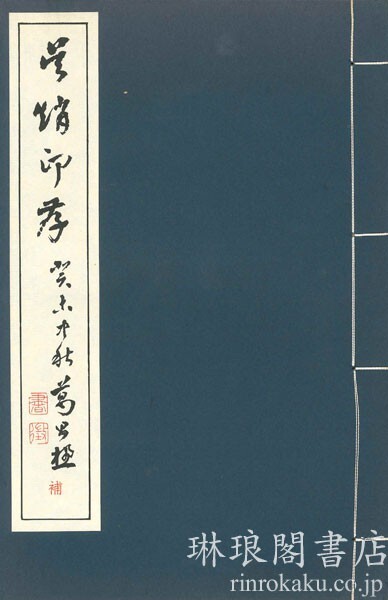 吴趙印存
癸未中秋葛昌楹
書徵
補
琳琅閣書店
rinrokaku.co.jp